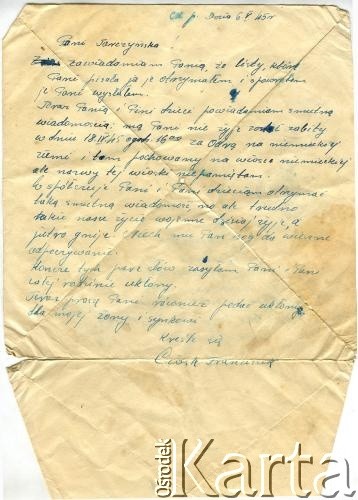 Cd. p. Dnia 6 V 45 r
Pani Tarczyńska
zawiadamiam Panią, że listy, które
Pani pisała ja je otrzymałem i spowrotem
je Pani wysłałem.
Teraz Panią i Pani dzieci powiadamiam smutną
wiadomością mąż Pani nie żyje został zabity
w dniu 18.IV.45 o godz 16°° za Odrą na niemieckiej
ziemi i tam pochowany na wiosce niemieckiej
ale nazwy tej wioski niepamiętam.
Współczuje Pani i Pani dzieciom otrzymać
taką smutną wiadomość no ale trudno
takie nasze życie wojenne dzisiaj żyje, a
jutro gnije. Niech mu Pan Bóg da wieczne
odpoczywanie.
Kończe tych pare słów zasyłam Pani i Pani
całej rodzinie ukłony.
Teraz proszę Panią również podać ukłony
dla mojej żony i synkowi
Kreśle się
Ośrodek
Karta